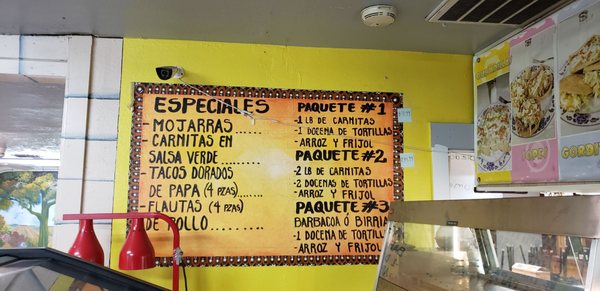 ESPECIALES
- MOJARRAS......
- CARNITAS EN
SALSA VERDE.........
- TACOS DORADOS
DE PAPA (4 PZAS)......
- FLAUTAS (4 PZAS)
DE POLLO..........
PAQUETE #1
-1 LB DE CARNITAS
-1 DOCENA DE TORTILLAS
-ARROZ Y FRIJOL
PAQUETE #2
-2 LB DE CARNITAS
-2 DOCENAS DE TORTILLAS
-ARROZ Y FRIJOL
PAQUETE #3
BARBACOA Ó BIRRIA
-1 DOCENA DE TORTILLAS
-ARROZ Y FRIJOL